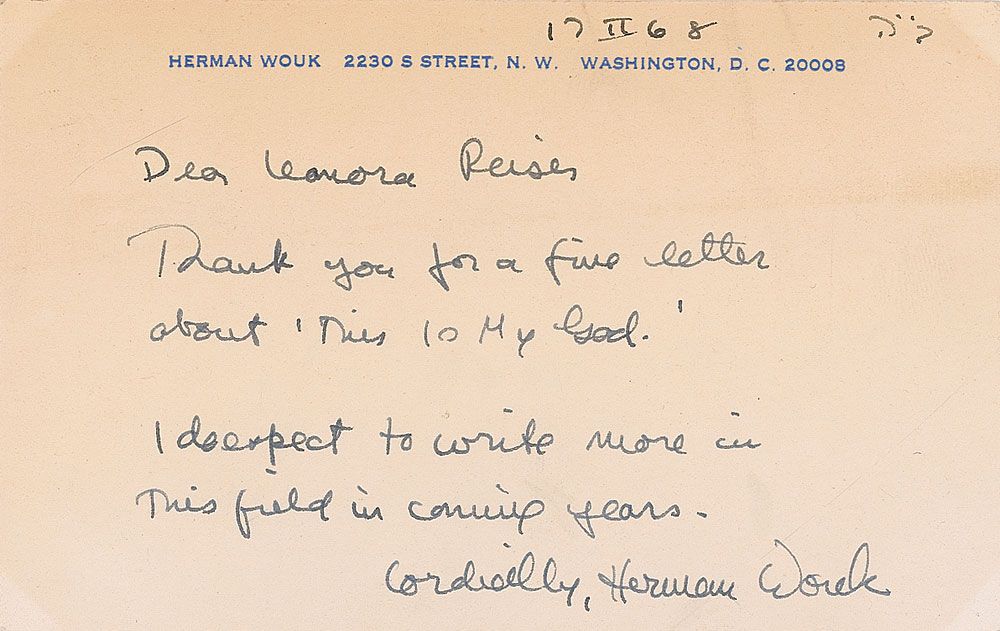 17 II 68 ב״ה
HERMAN WOUK 2230 S STREET, N. W. WASHINGTON, D. C. 20008
Dear Leonora Reiser
Thank you for a fine letter
about 'This Is My God.'
I do expect to write more in
this field in coming years.
Cordially, Herman Wouk